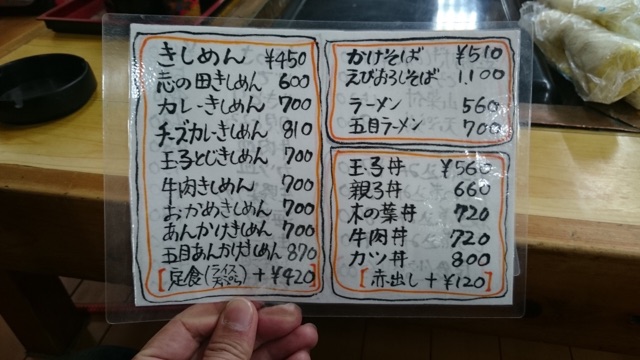 きしめん ¥450
志の田きしめん 600
カレーきしめん 700
チーズカレーきしめん 810
玉子とじきしめん 700
牛肉きしめん 700
おかめきしめん 700
あんかけきしめん 700
五目あんかけきしめん 870
[定食(ライス 天ぷら) +¥420]
かけそば ¥510
えびおろしそば 1.100
ラーメン 560
五目ラーメン 700
玉子丼 ¥560
親子丼 660
木の葉丼 720
牛肉丼 720
カツ丼 800
[赤出し +¥120]